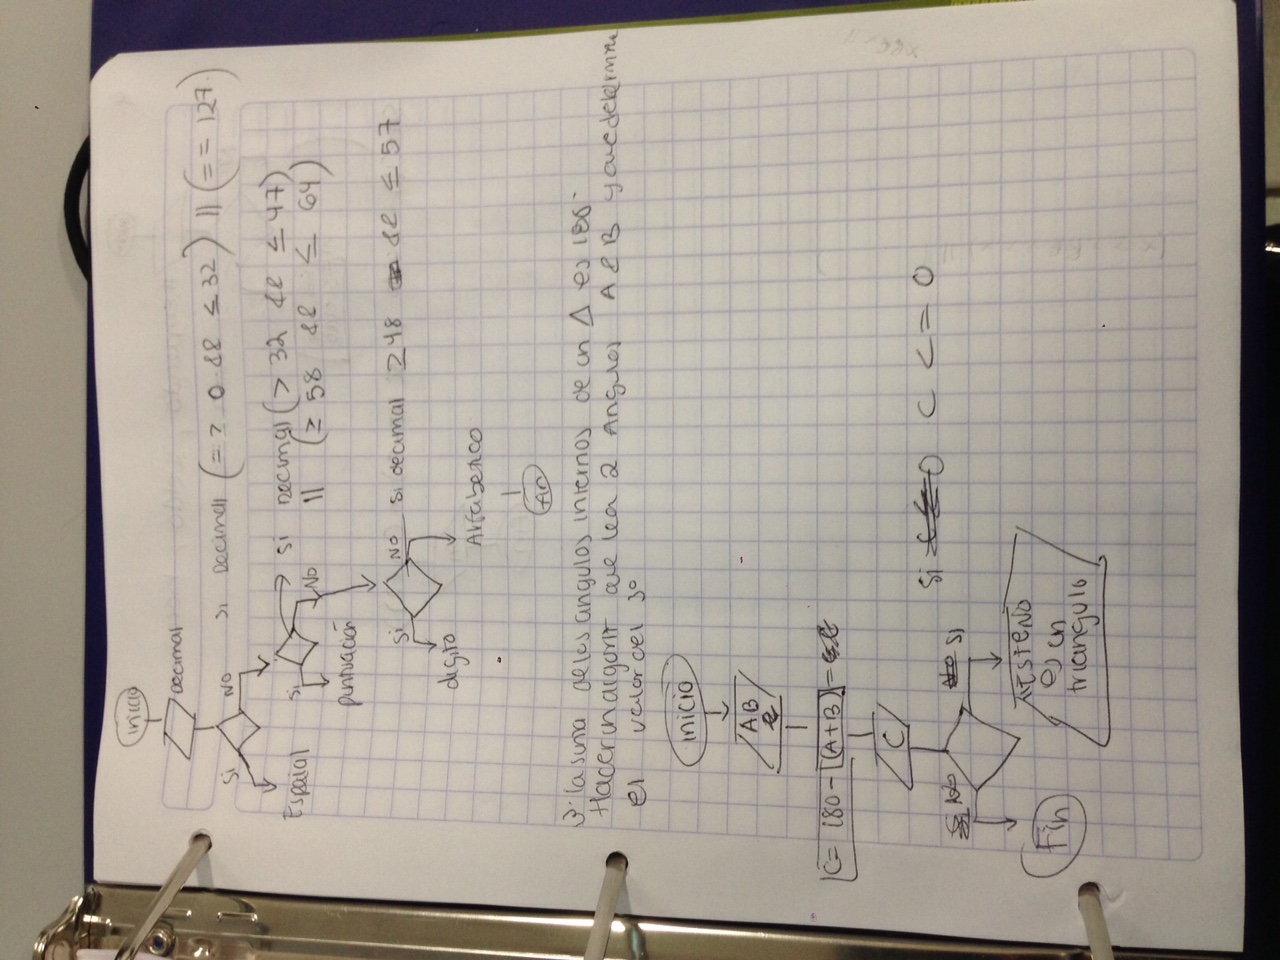 inicio
Decimal
Si NO
si Decimal (= ≥ 0 && ≤ 32) || (== 127)
Espacial
Si No
Si Decimal (> 32 && ≤ 47)
|| (≥ 58 && ≤ 64)
puntuación
Si NO
Si decimal ≥48 && ≤ 57
digito
Alfabetico
fin
3. la suma de los angulos internos de un Δ es 180
Hacer un algorit que lea 2 Angulos A & B y que determine
el valor del 3º
inicio
A B
C= 180 - [(A+B)] =
C
Si C <= 0
No Si
Fin
"ESTE NO
es un
triangulo